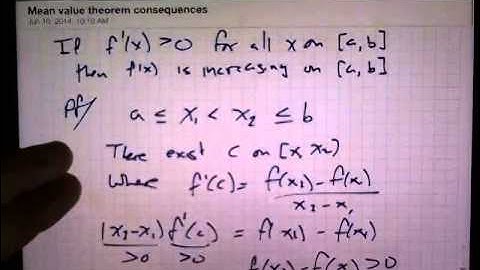 Mean value theorem consequences
Jun 10, 2014, 10:10 AM
If f'(x) > 0 for all x on [a, b]
then f(x) is increasing on [a, b]
Pf/ a ≤ x₁ < x₂ ≤ b
There exist c on [x, x₂)
Where f'(c) = f(x₂) - f(x) / x₂ - x₁
(x₂-x₁) f'(c) = f(x₂) - f(x₁)
>0 >0
f(x₂) - f(x) > 0